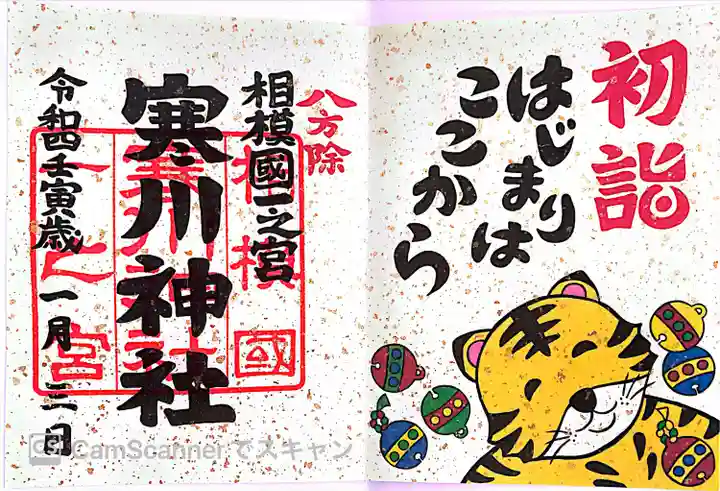 初詣
はじまりは
ここから
八方除
相模國一之宮
寒川神社
令和四壬寅歳 一月 三日
相模國
一之宮
CamScannerでスキャン